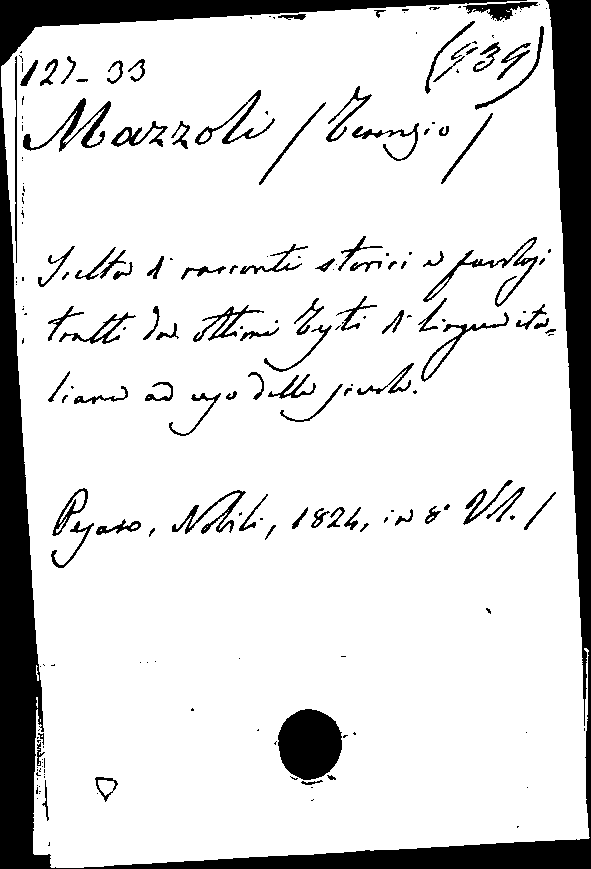 127-33 (9.39)
Mazzoli / Terenzio /
Scelta di racconti storici e favolosi
tratti da ottimi Testi di lingua ita=
liana ad uso delle scuole.
Pesaro, Nobili, 1824, in 8° Vol. 1